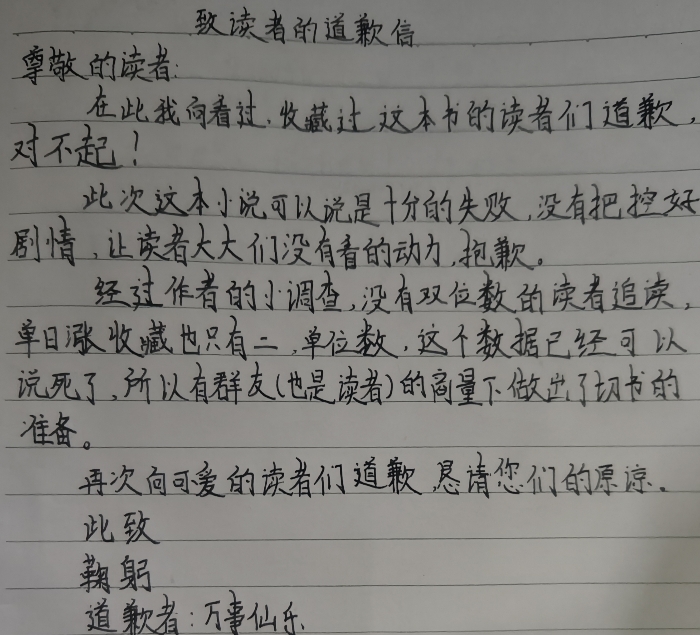 致读者的道歉信
尊敬的读者:
在此我向看过,收藏过这本书的读者们道歉,
对不起!
此次这本小说可以说是十分的失败,没有把控好
剧情,让读者大大们没有看的动力,抱歉。
经过作者的小调查,没有双位数的读者追读,
单日涨收藏也只有二,单位数,这个数据已经可以
说死了,所以有群友(也是读者)的商量下做出了切书的
准备。
再次向可爱的读者们道歉,恳请您们的原谅。
此致
鞠躬
道歉者:万事仙乐